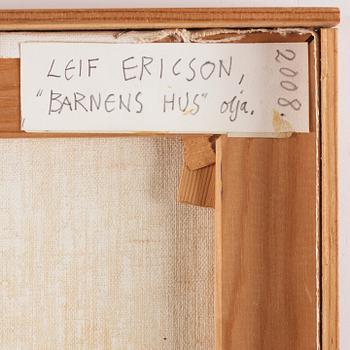 LEIF ERICSON,
"BARNENS HUS" olja.
2008.